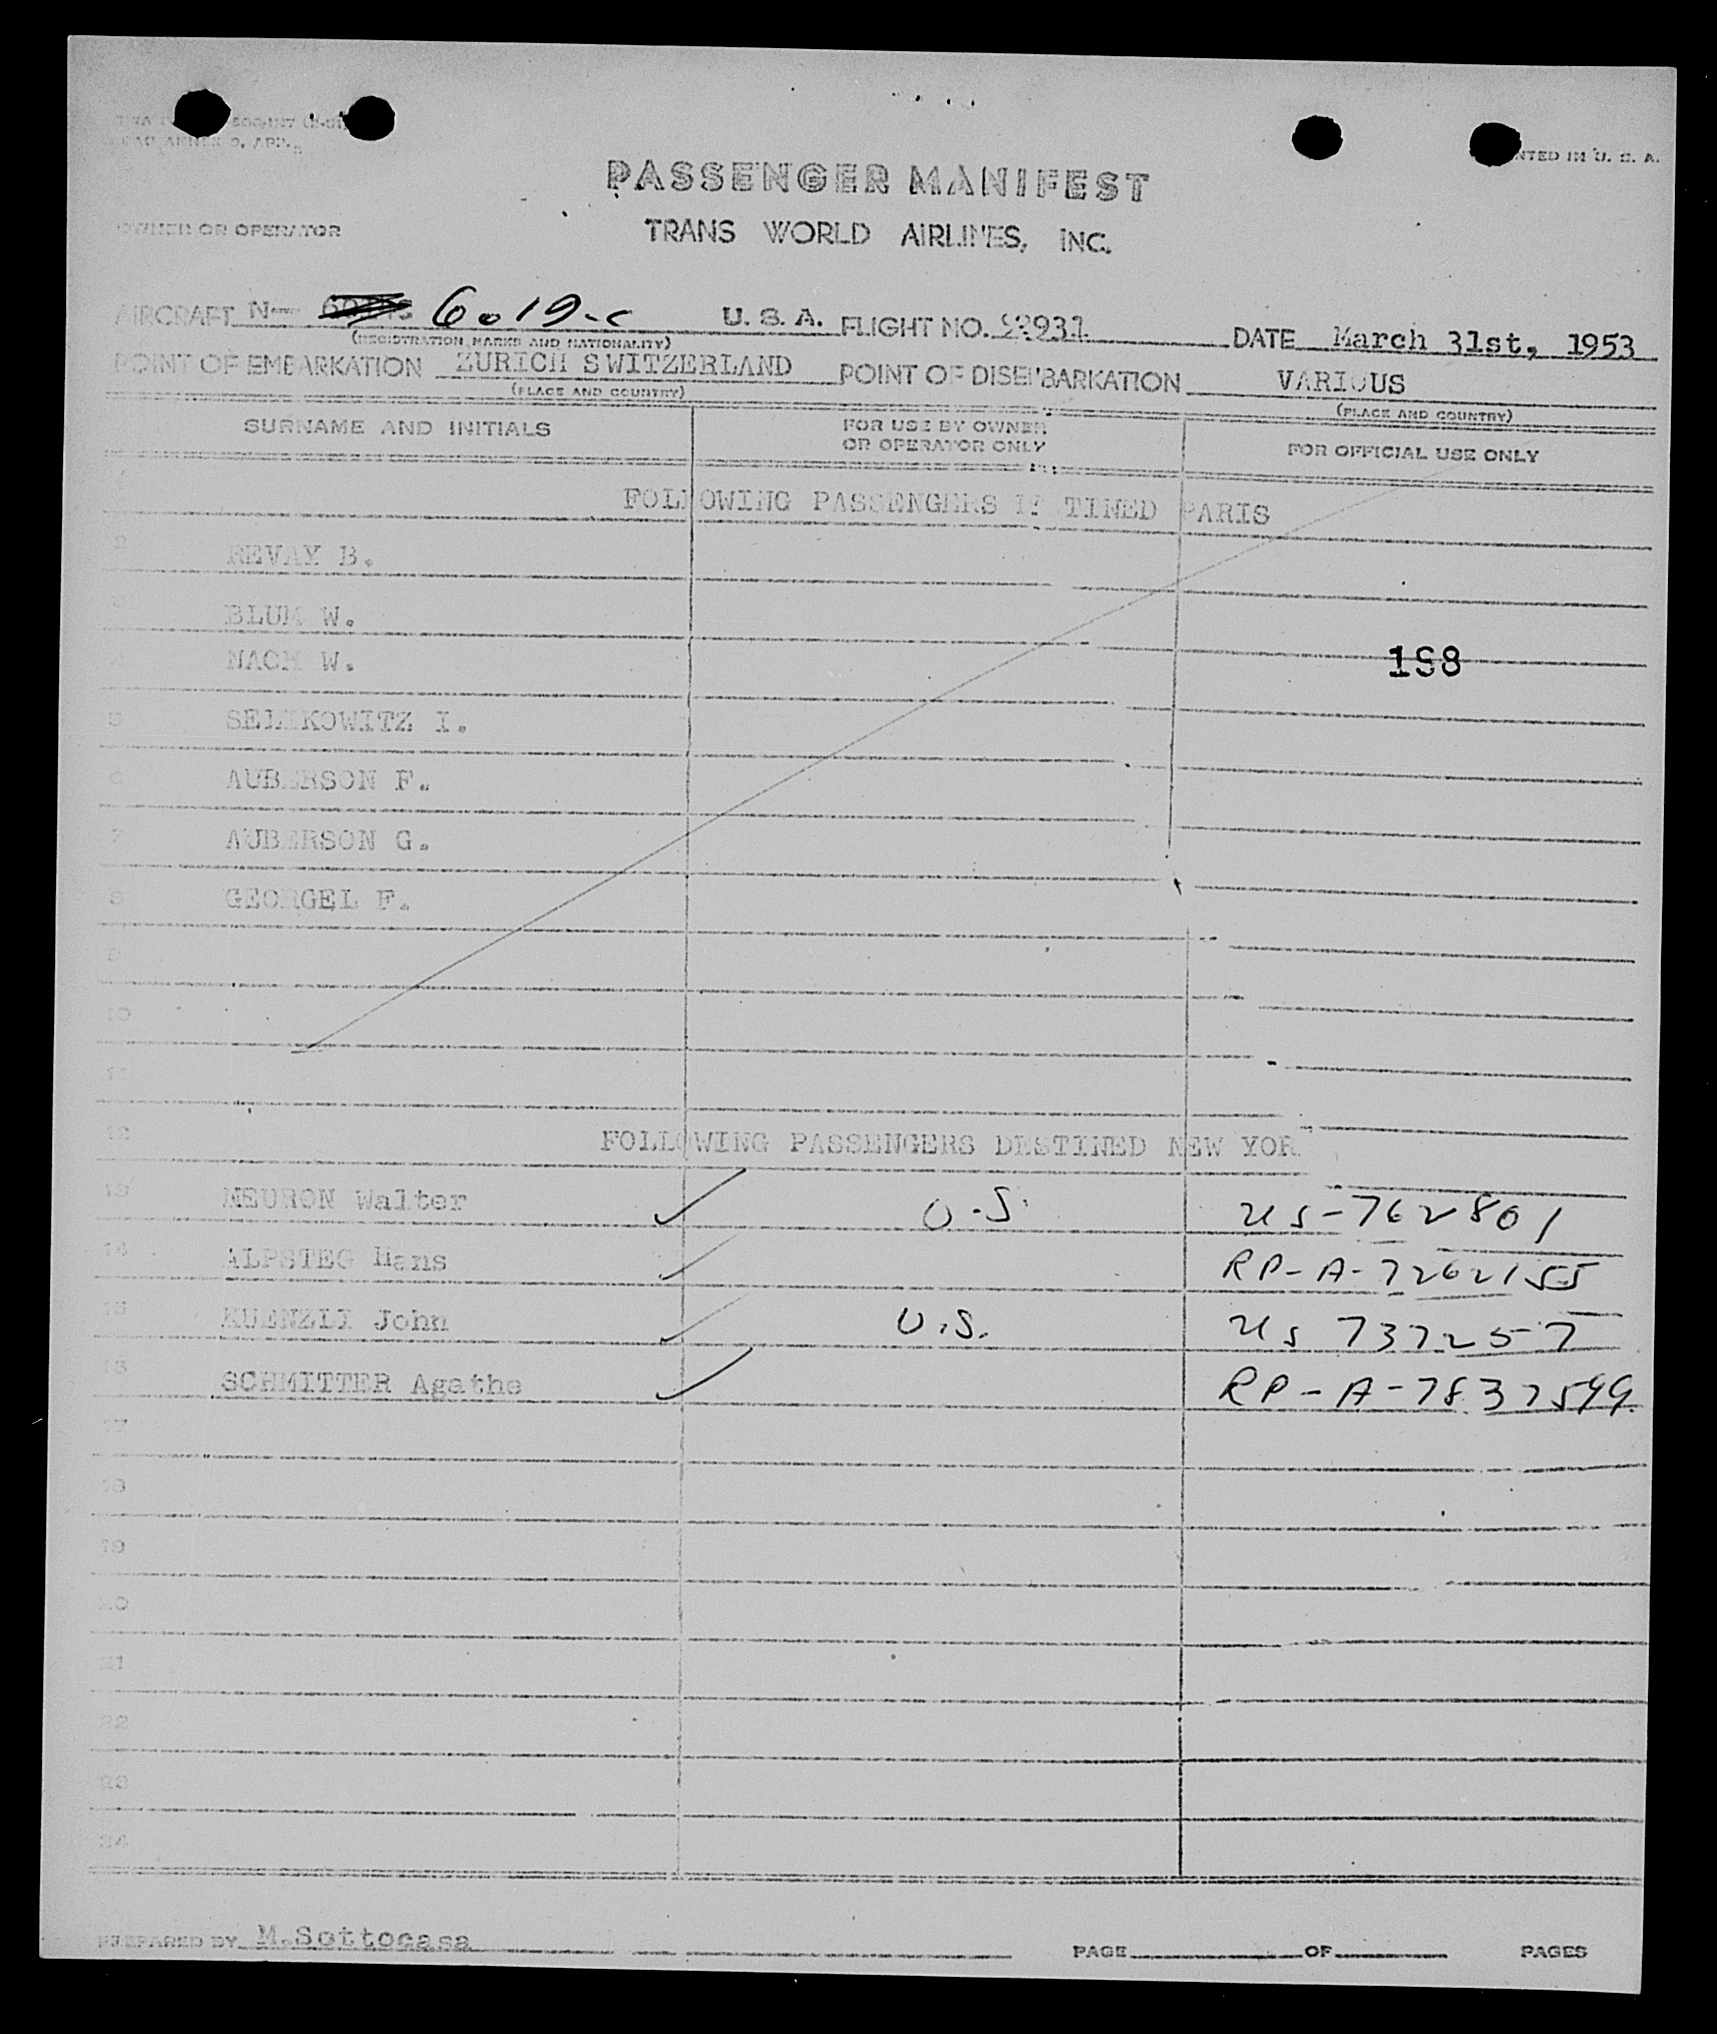 PRINTED IN U. S. A.
PASSENGER MANIFEST
OWNER OR OPERATOR
TRANS WORLD AIRLINES, INC.
AIRCRAFT N— 6019-C U. S. A. FLIGHT NO. DATE March 31st, 1953
(REGISTRATION MARKS AND NATIONALITY)
POINT OF EMBARKATION ZURICH SWITZERLAND POINT OF DISEMBARKATION VARIOUS
(PLACE AND COUNTRY) (PLACE AND COUNTRY)
SURNAME AND INITIALS FOR USE BY OWNER OR OPERATOR ONLY FOR OFFICIAL USE ONLY
1 FOLLOWING PASSENGERS DESTINED PARIS
2 REVAY B.
3 BLUM W.
4 NACH W. 198
5 SELIKOWITZ I.
6 AUBERSON F.
7 AUBERSON G.
8 GEORGEL F.
9
10
11
12 FOLLOWING PASSENGERS DESTINED NEW YOR
13 NEURON Walter ✓ U.S. US-762801
14 ALPSTEG Hans ✓ RP-A-7262155
15 KUENZLI John ✓ U.S. US 737257
16 SCHMITTER Agathe ✓ RP-A-7837599
17
18
19
20
21
22
23
24
PREPARED BY M.Sottocasa PAGE OF PAGES